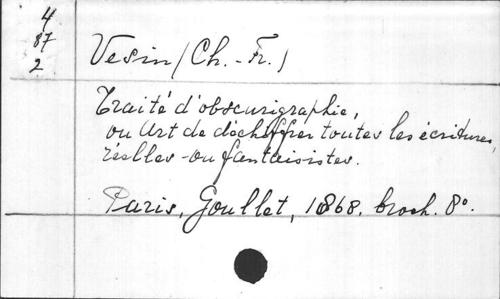 4
87
2
Vesin (Ch.-Fr.)
Traité d'obscurigraphie,
ou Art de déchiffrer toutes les écritures,
réelles ou fantaisistes.
Paris, Goullet, 1868. broch. 8°.